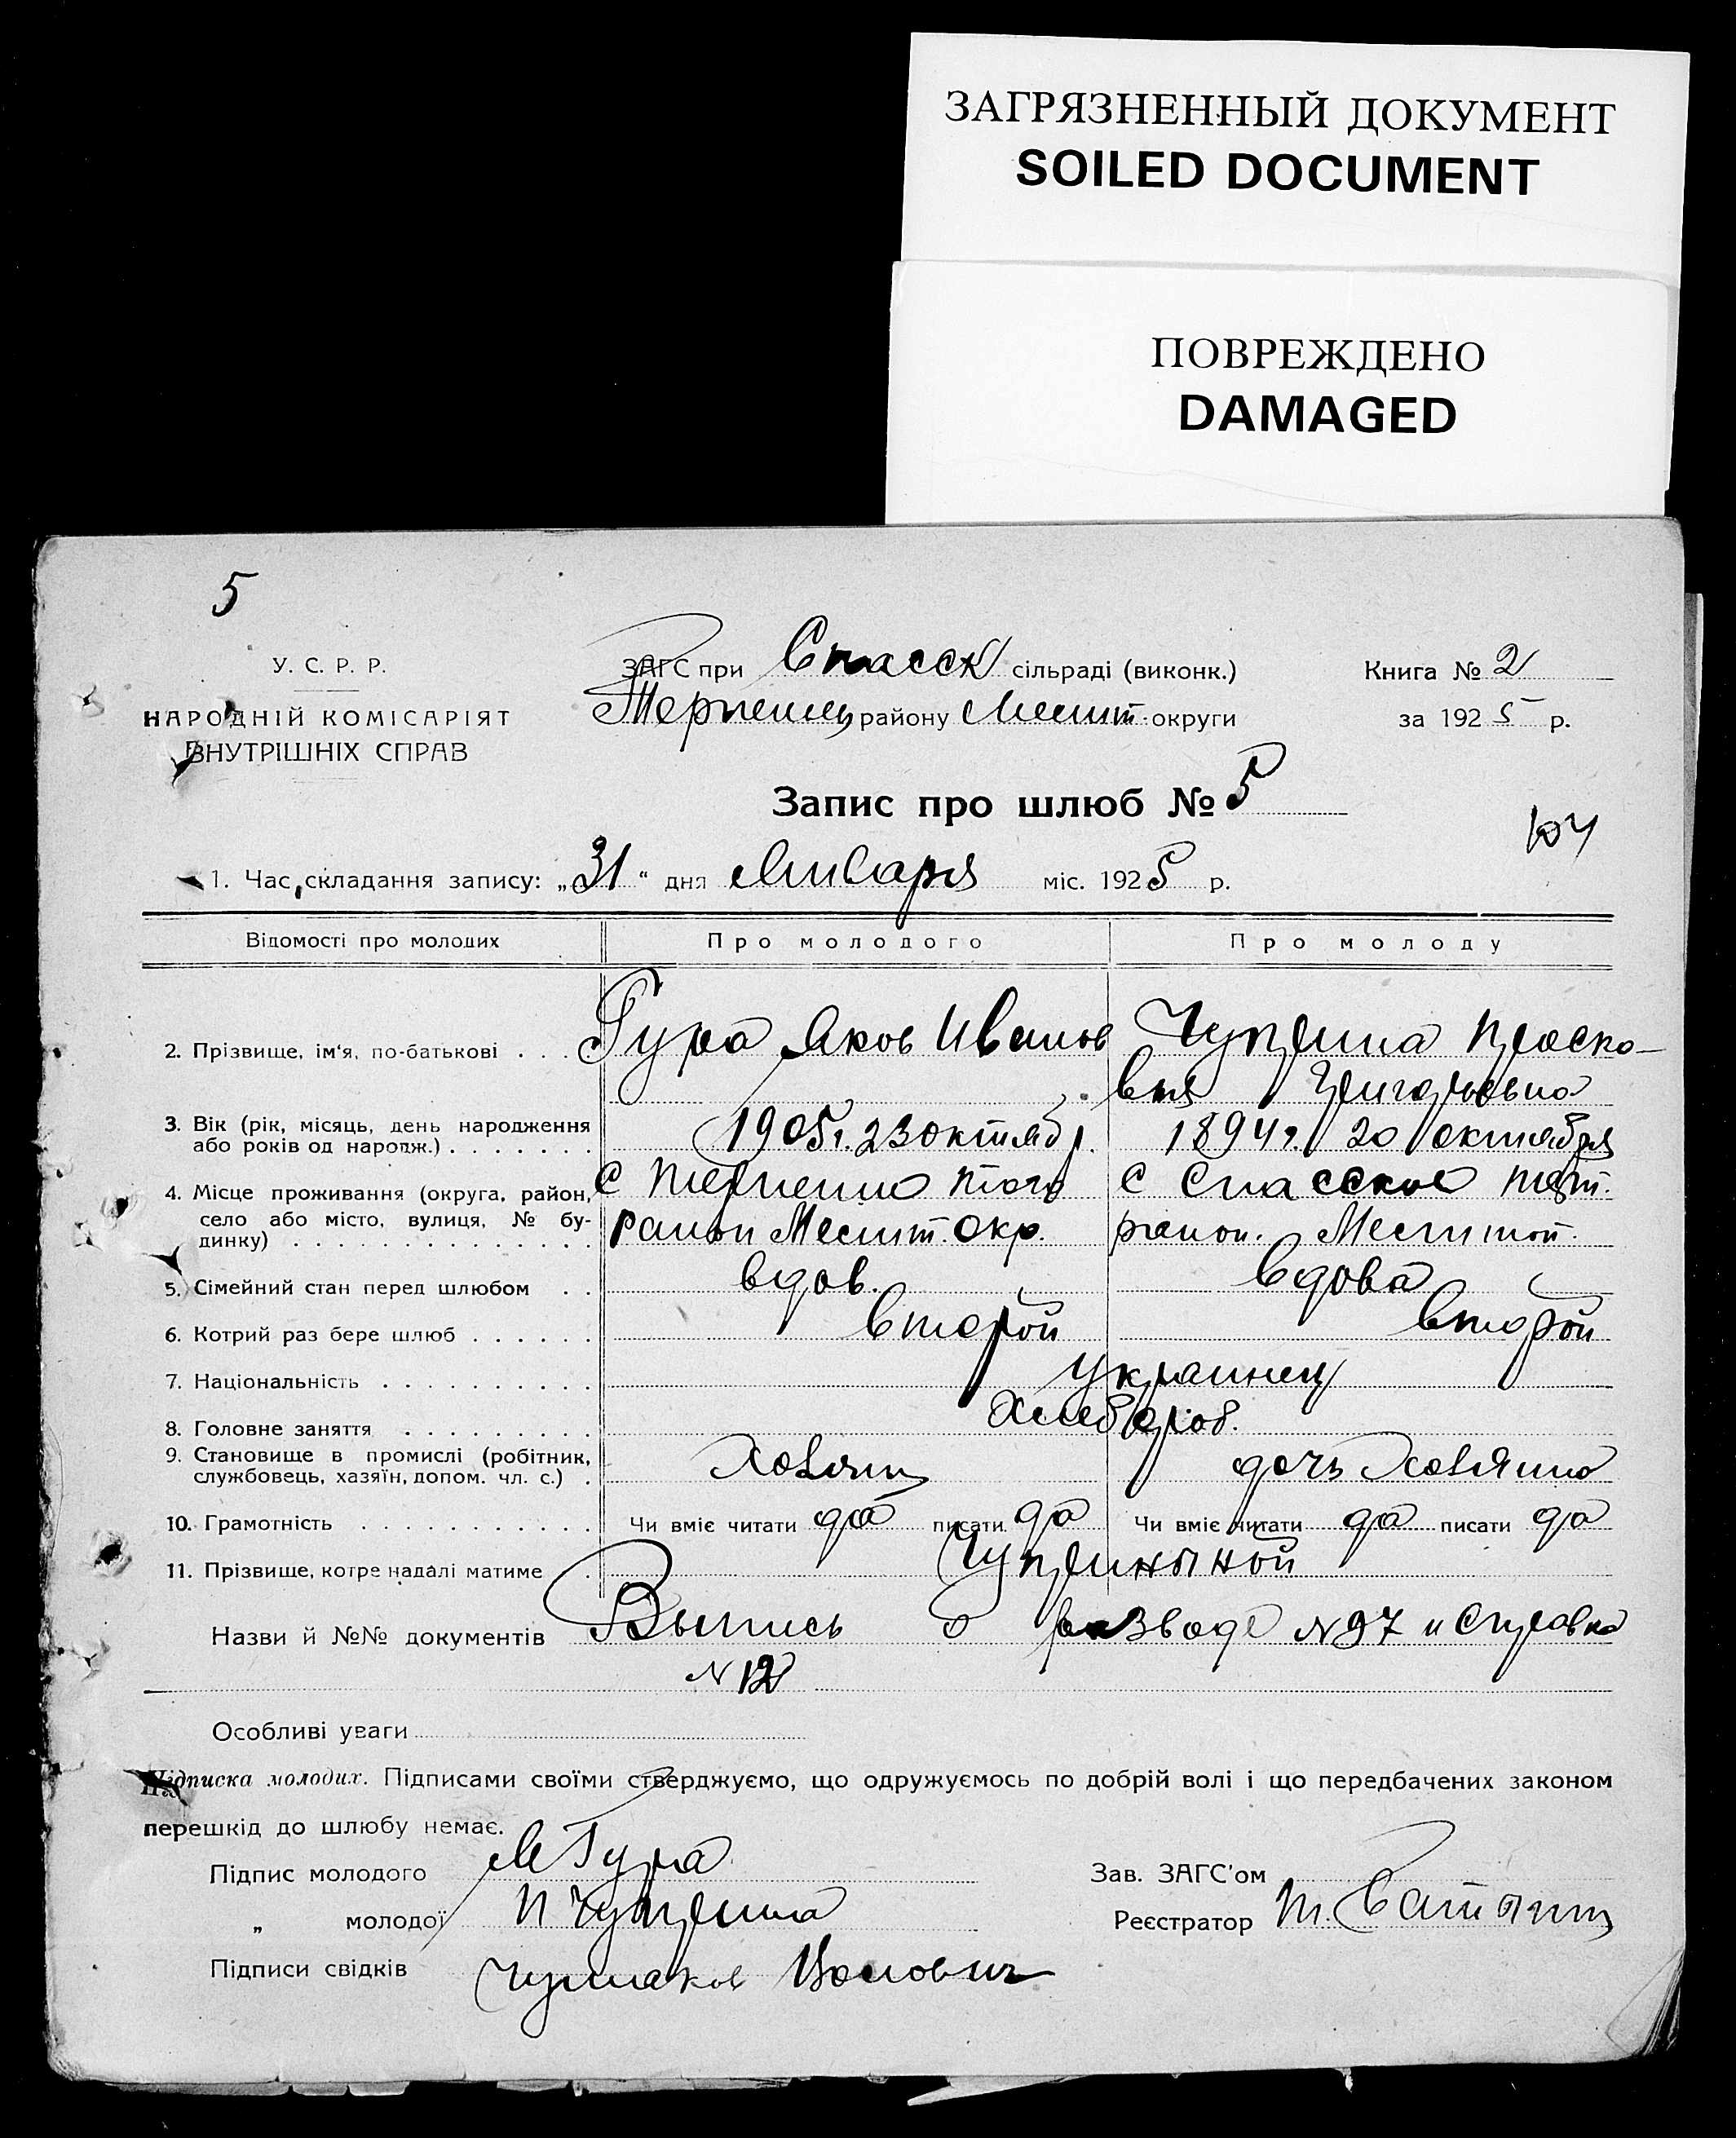 ЗАГРЯЗНЕННЫЙ ДОКУМЕНТ
SOILED DOCUMENT
ПОВРЕЖДЕНО
DAMAGED
5
У. С. Р. Р.
НАРОДНІЙ КОМІСАРІЯТ
ВНУТРІШНІХ СПРАВ
ЗАГС при Спасск сільраді (виконк.)
Терпенец району Мелит. округи
Книга № 2
за 1925 р.
Запис про шлюб № 5
104
1. Час складання запису: „31“ дня Января міс. 1925 р.
Відомості про молодих Про молодого Про молоду
2. Прізвище, ім'я, по-батькові . . . Гура Яков Иванов Чуприна Праско-
вия Григорьевна
3. Вік (рік, місяць, день народження 1905 г. 23 октябр. 1894 г. 20 октября
або років од народж.) . . . . . . .
4. Місце проживання (округа, район, С Терпение того С Спасское Терп.
село або місто, вулиця, № бу- район Мелит. окр. район. Мелитоп.
динку) . . . . . . . . . . . . . .
5. Сімейний стан перед шлюбом . . вдов. вдова
6. Котрий раз бере шлюб . . . . . . второй второй
7. Національність . . . . . . . . . . украинец
8. Головне заняття . . . . . . . . . Хлебороб.
9. Становище в промислі (робітник, Хозяин дочь Хозяина
службовець, хазяїн, допом. чл. с.) .
10. Грамотність . . . . . . . . . . . Чи вміє читати да писати да Чи вміє читати да писати да
11. Прізвище, котре надалі матиме . Чуприныной
Назви й №№ документів Выпись о разводе N 97 и Справка
N 12
Особливі уваги
Підписка молодих. Підписами своїми стверджуємо, що одружуємось по добрій волі і що передбачених законом
перешкід до шлюбу немає.
Підпис молодого Гура
Зав. ЗАГС'ом
„ молодої П Чуприна
Реєстратор
Підписи свідків